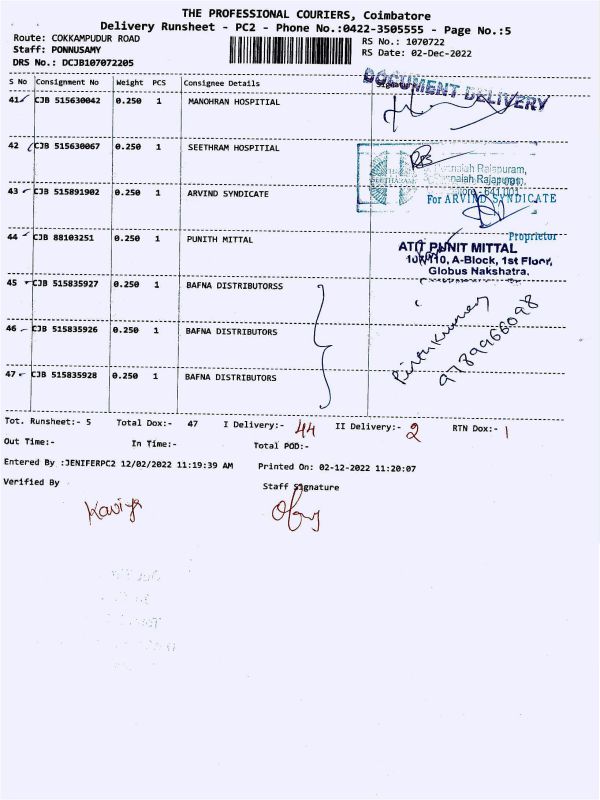 THE PROFESSIONAL COURIERS, Coimbatore
Delivery Runsheet - PC2 - Phone No.:0422-3505555 - Page No.:5
Route: COKKAMPUDUR ROAD
Staff: PONNUSAMY
DRS No.: DCJB107072205
RS No.: 1070722
RS Date: 02-Dec-2022
S No Consignment No Weight PCS Consignee Details
DOCUMENT DELIVERY
41 CJB 515630042 0.250 1 MANOHRAM HOSPITIAL
42 CJB 515630067 0.250 1 SEETHRAM HOSPITIAL
43 CJB 515891902 0.250 1 ARVIND SYNDICATE
For ARVIND SYNDICATE
Proprietor
44 CJB 88103251 0.250 1 PUNITH MITTAL
PUNIT MITTAL
A-Block, 1st Floor,
Globus Nakshatra,
45 CJB 515835927 0.250 1 BAFNA DISTRIBUTORSS
46 CJB 515835926 0.250 1 BAFNA DISTRIBUTORS
9789966098
47 CJB 515835928 0.250 1 BAFNA DISTRIBUTORS
Tot. Runsheet:- 5 Total Dox:- 47 I Delivery:- 44 II Delivery:- 2 RTN Dox:- 1
Out Time:- In Time:- Total POD:-
Entered By :JENIFERPC2 12/02/2022 11:19:39 AM Printed On: 02-12-2022 11:20:07
Verified By Staff Signature
Kaviya